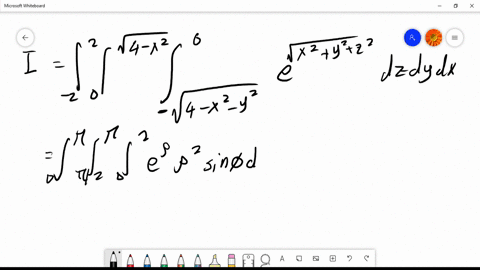 Microsoft Whiteboard
I = ∫_{-2}^{2} ∫_{0}^{√(4-x²)} ∫_{-√(4-x²-y²)}^{0} e^{√(x²+y²+z²)} dz dy dx
= ∫_{0}^{π} ∫_{π/2}^{π} ∫_{0}^{2} e^ρ ρ² sinϕ d